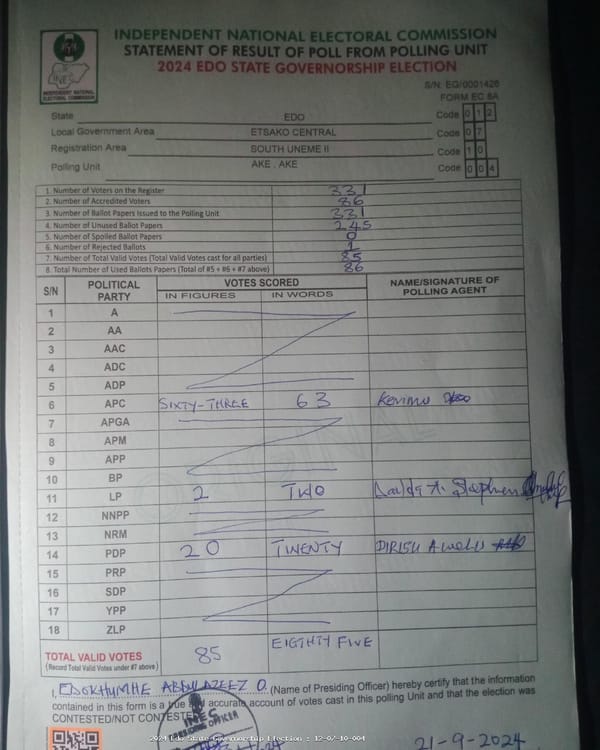 INDEPENDENT NATIONAL ELECTORAL COMMISSION
STATEMENT OF RESULT OF POLL FROM POLLING UNIT
2024 EDO STATE GOVERNORSHIP ELECTION
INEC
INDEPENDENT NATIONAL
ELECTORAL COMMISSION
S/N: EG/0001426
FORM EC 8A
State EDO Code 0 1 2
Local Government Area ETSAKO CENTRAL Code 0 7
Registration Area SOUTH UNEME II Code 1 0
Polling Unit AKE . AKE Code 0 0 4
1. Number of Voters on the Register 331
2. Number of Accredited Voters 86
3. Number of Ballot Papers Issued to the Polling Unit 331
4. Number of Unused Ballot Papers 245
5. Number of Spoiled Ballot Papers 0
6. Number of Rejected Ballots 1
7. Number of Total Valid Votes (Total Valid Votes cast for all parties) 85
8. Total Number of Used Ballots Papers (Total of #5 + #6 + #7 above) 86
S/N POLITICAL PARTY VOTES SCORED NAME/SIGNATURE OF POLLING AGENT
IN FIGURES IN WORDS
1 A
2 AA
3 AAC
4 ADC
5 ADP
6 APC SIXTY-THREE 63
7 APGA
8 APM
9 APP
10 BP
11 LP 2 TWO Stephen
12 NNPP
13 NRM
14 PDP 20 TWENTY
15 PRP
16 SDP
17 YPP
18 ZLP
TOTAL VALID VOTES 85 EIGHTY FIVE
(Record Total Valid Votes under #7 above)
I, EDOKHUMHE ABDULAZEEZ O. (Name of Presiding Officer) hereby certify that the information
contained in this form is a true and accurate account of votes cast in this polling Unit and that the election was
CONTESTED/NOT CONTESTED
INEC
OFFICER
2024 Edo State Governorship Election : 12-07-10-004
21-9-2024